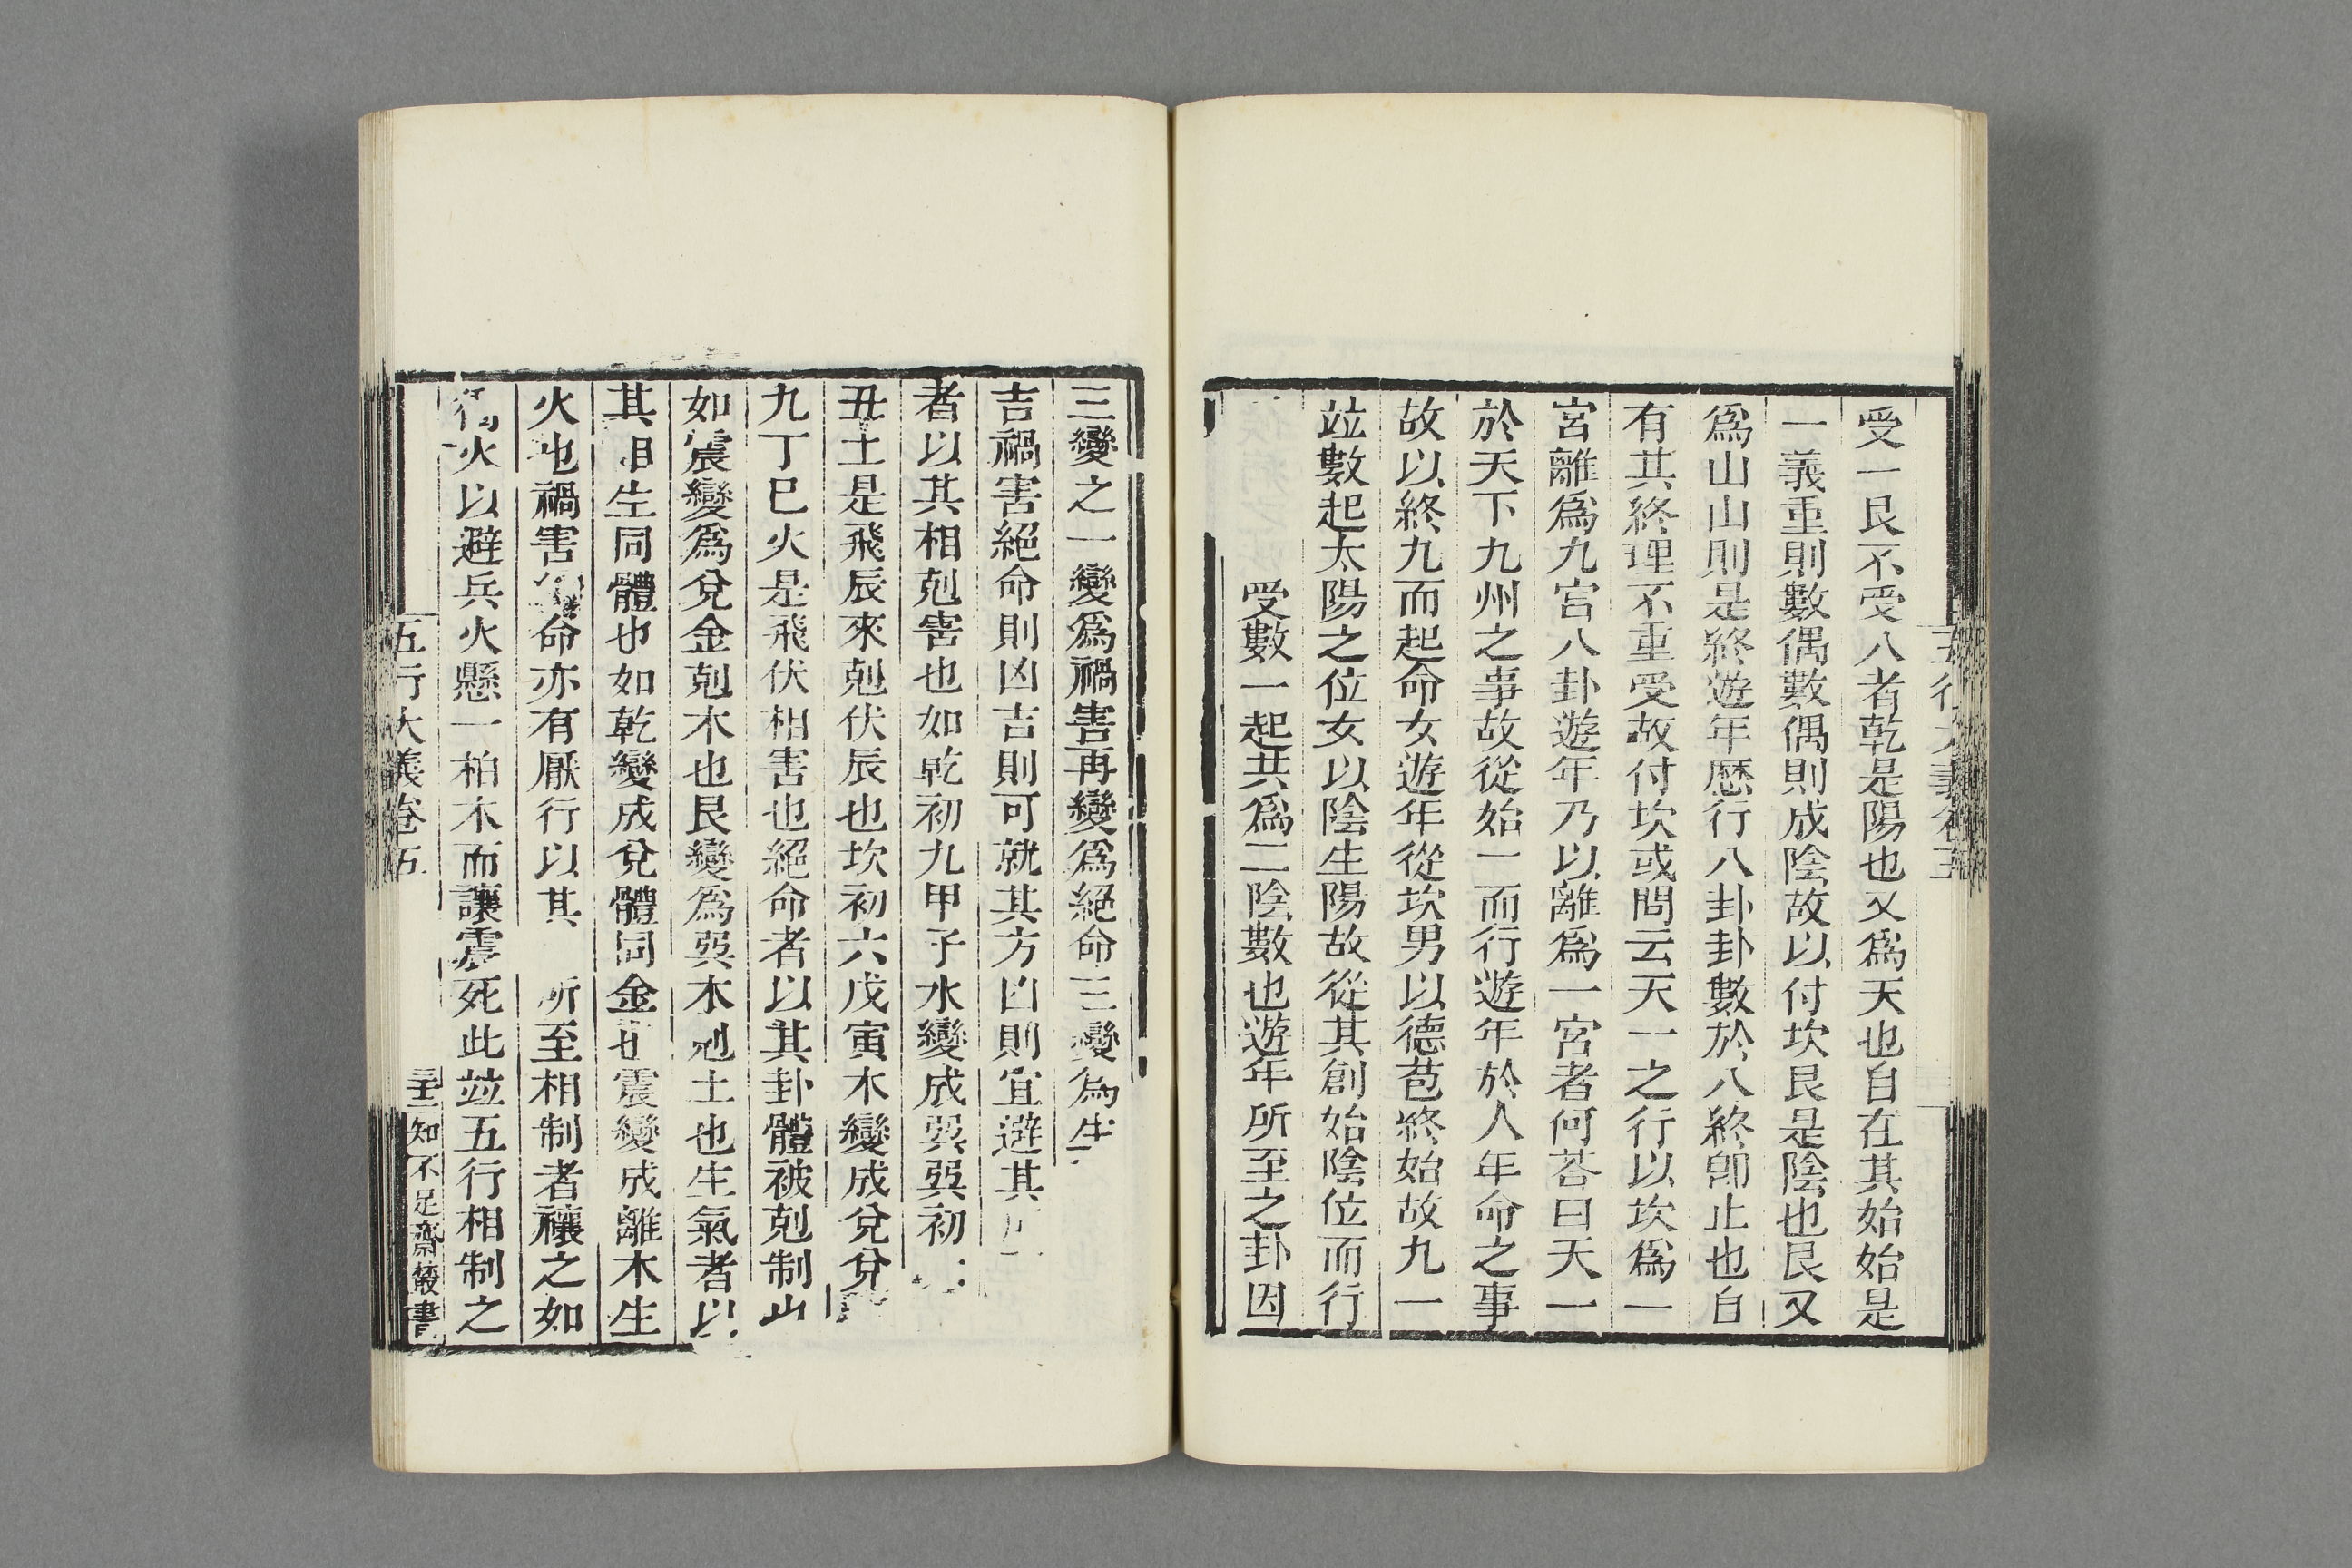 受一艮不受八者乾是陽也又爲天也自在其始始是
一義重則數偶數偶則成陰故以付坎艮是陰也艮又
爲山山則是終遊年歷行八卦卦數於八終卽止也自
有其終理不重受故付坎或問云天一之行以坎爲一
宮離爲九宮八卦遊年乃以離爲一宮者何荅曰天一
於天下九州之事故從始一而行遊年於人年命之事
故以終九而起命女遊年從坎男以德苞終始故九一
竝數起太陽之位女以陰生陽故從其創始陰位而行
受數一起共爲二陰數也遊年所至之卦因
三變之一變爲禍害再變爲絕命三變爲生
吉禍害絕命則凶吉則可就其方凶則宜避其
者以其相剋害也如乾初九甲子水變成巽巽初
丑土是飛辰來剋伏辰也坎初六戊寅木變成兌兌
九丁巳火是飛伏相害也絕命者以其卦體被剋制
如震變爲兌金剋木也艮變爲巽木剋土也生氣者以
其相生同體也如乾變成兌體同金也震變成離木生
火也禍害絕命亦有厭行以其所至相制者禳之如
火以避兵火懸一柏木而讓震死此竝五行相制之
五行大義卷五
知不足齋叢書